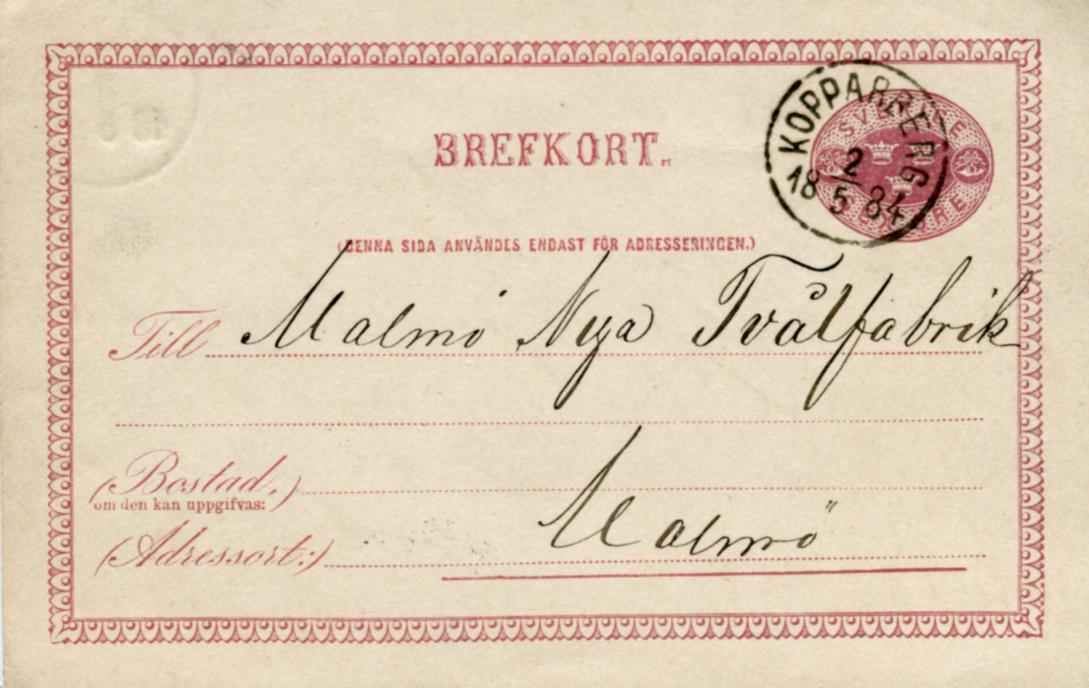 BREFKORT.
KOPPARBERG
2
18 5 84
SVERIGE
ÖRE
(DENNA SIDA ANVÄNDES ENDAST FÖR ADRESSERINGEN.)
Till Malmö Nya Tvålfabrik
(Bostad,)
om den kan uppgifvas:
(Adressort:) Malmö